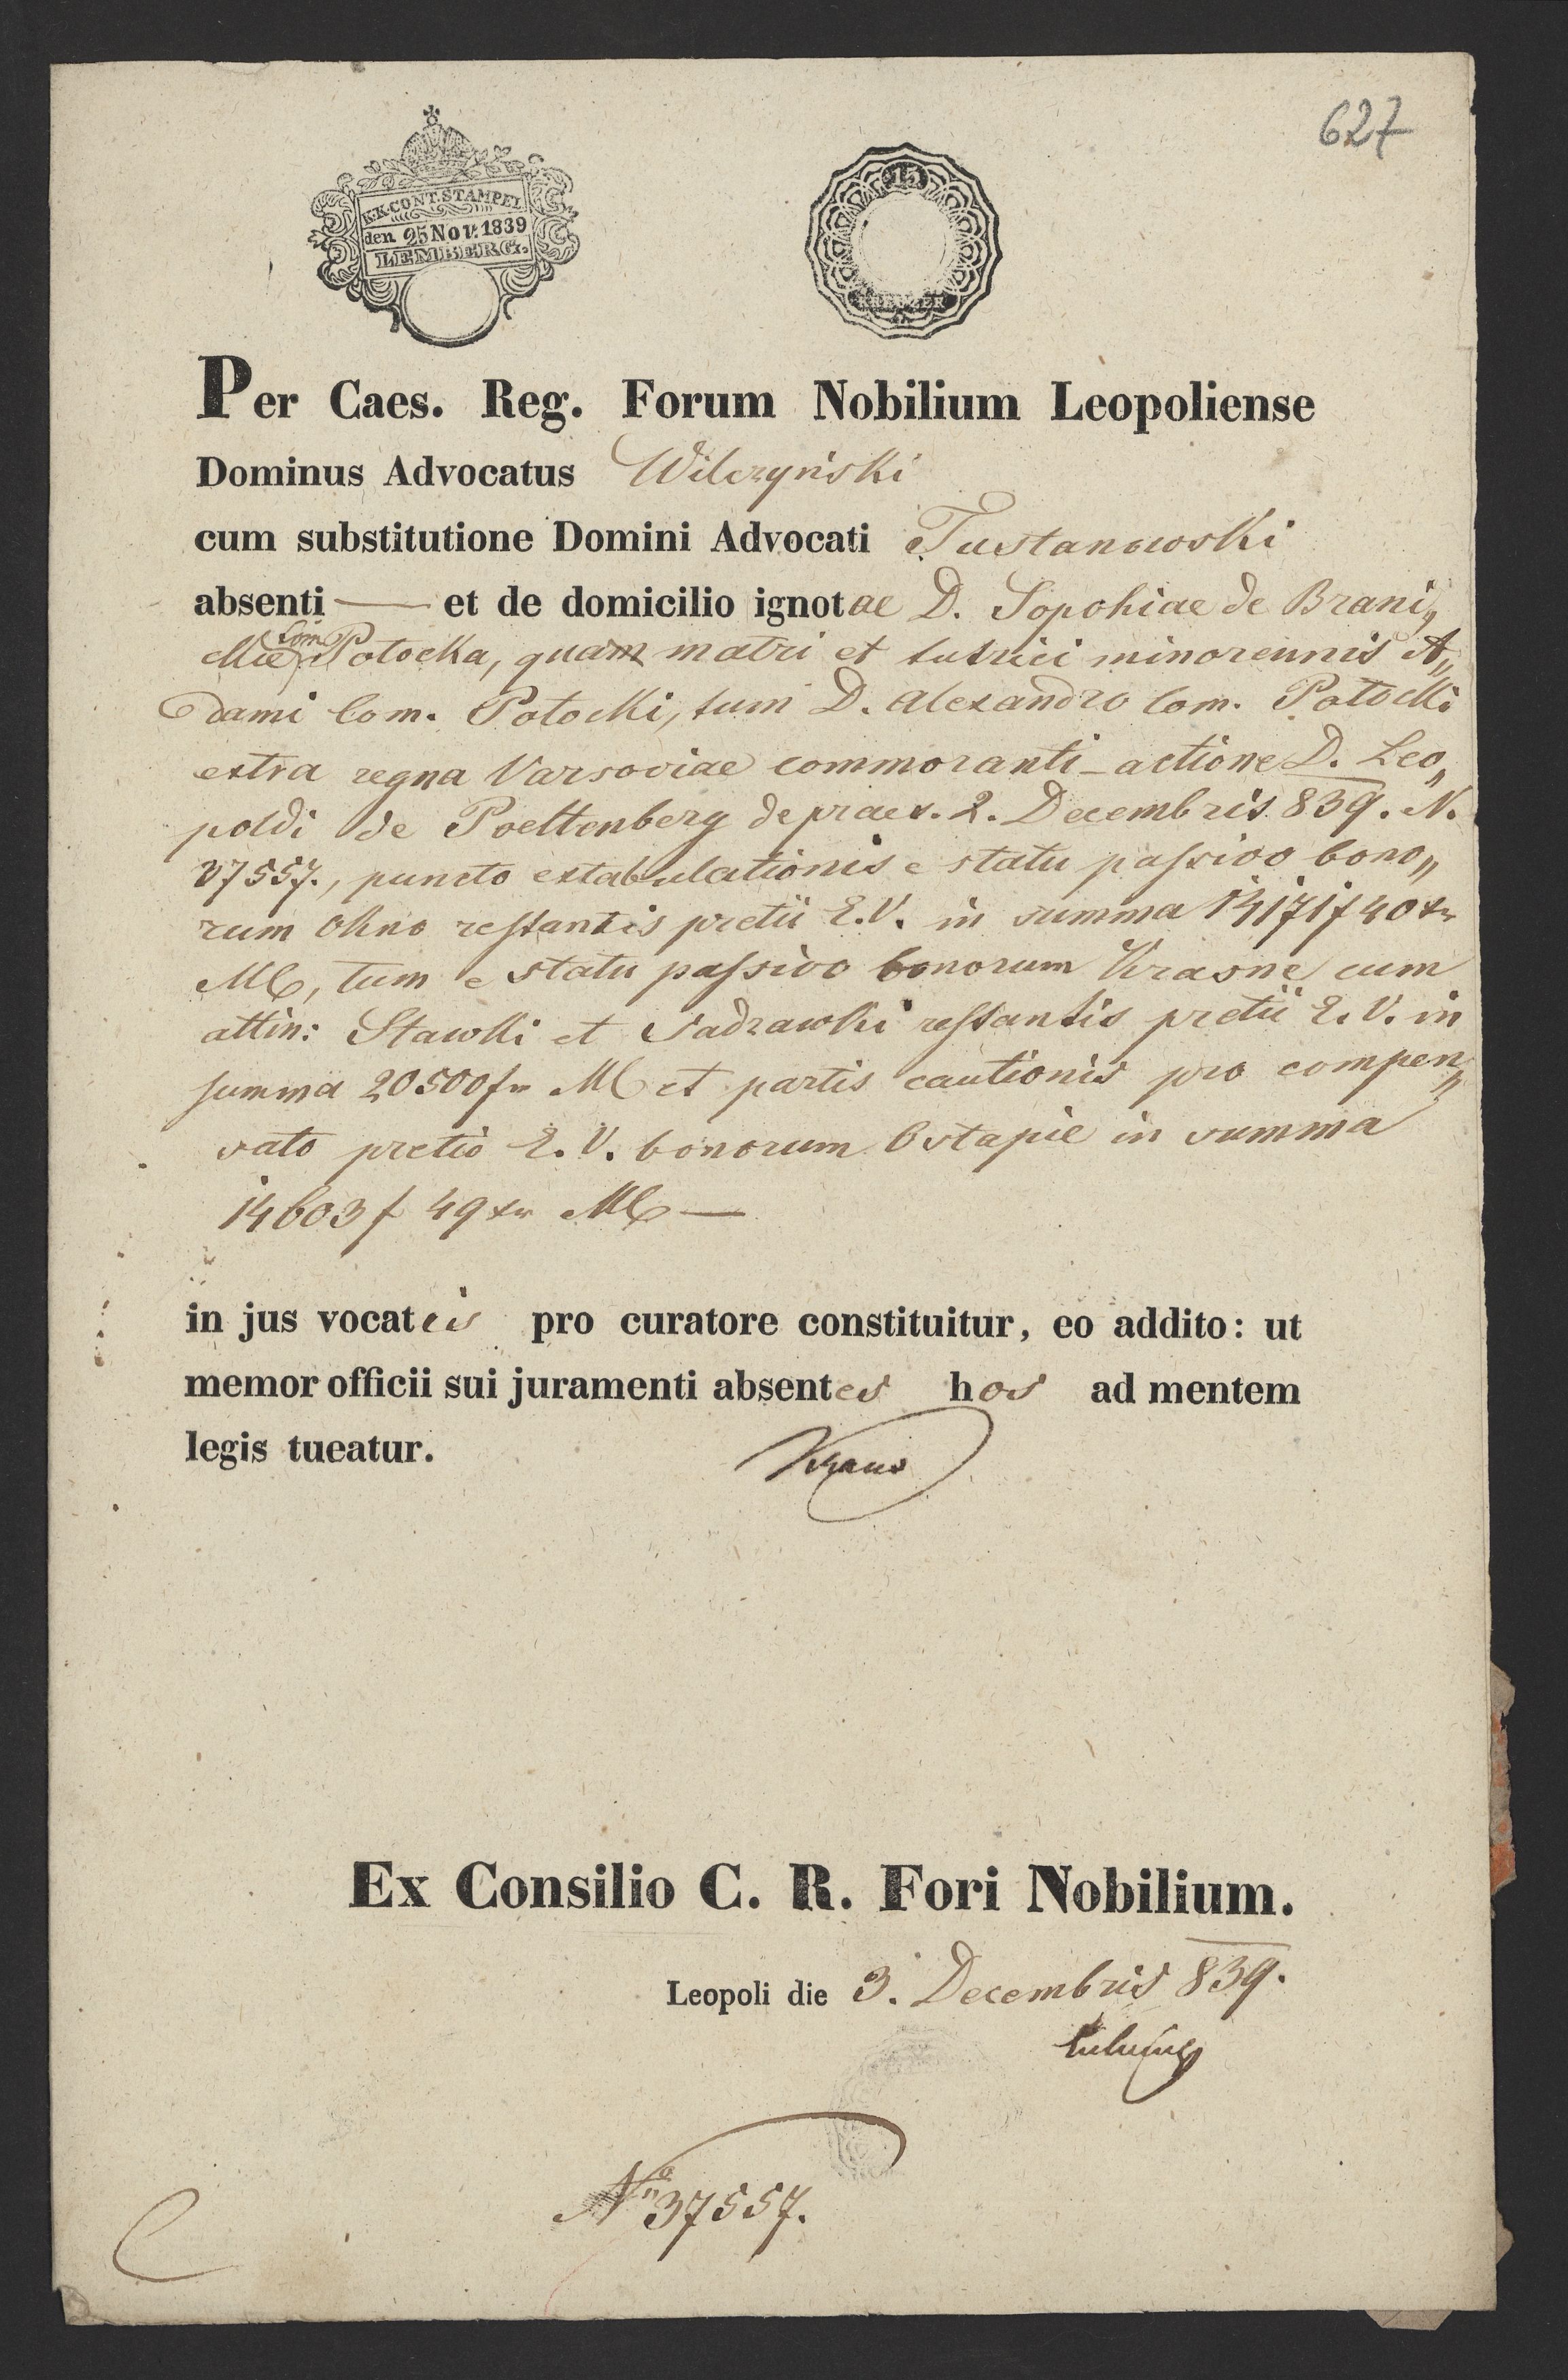 627
K.K.CONT.STAMPEL
den 25 Nov. 1839
LEMBERG.
15
KREUZER
Per Caes. Reg. Forum Nobilium Leopoliense
Dominus Advocatus Wilczyński
cum substitutione Domini Advocati Tustanowski
absenti — et de domicilio ignotae D. Sopohiae de Brani„
ckie Com. Potocka, quam matri et tutrici minorennis A„
dami Com. Potocki, tum D. Alexandro Com. Potocki
extra regna Varsoviae commoranti – actione D. Leo„
poldi de Poeltenberg de praes. 2. Decembris 839. N.
37557., puncto extabulationis e statu passivo bono„
rum Okno restantis pretii E.V. in summa 14171f 40 xr
MC, tum e statu passivo bonorum Krasne cum
attin: Stawki et Sadzawki restantis pretii E.V. in
summa 20500fr MC et partis cautionis pro compen„
sato pretio E.V. bonorum Ostapie in summa
14603f 49xr MC —
in jus vocatis pro curatore constituitur, eo addito: ut
memor officii sui juramenti absentes hos ad mentem
legis tueatur.
Kraus
Ex Consilio C. R. Fori Nobilium.
Leopoli die 3. Decembris 839.
N° 37557.